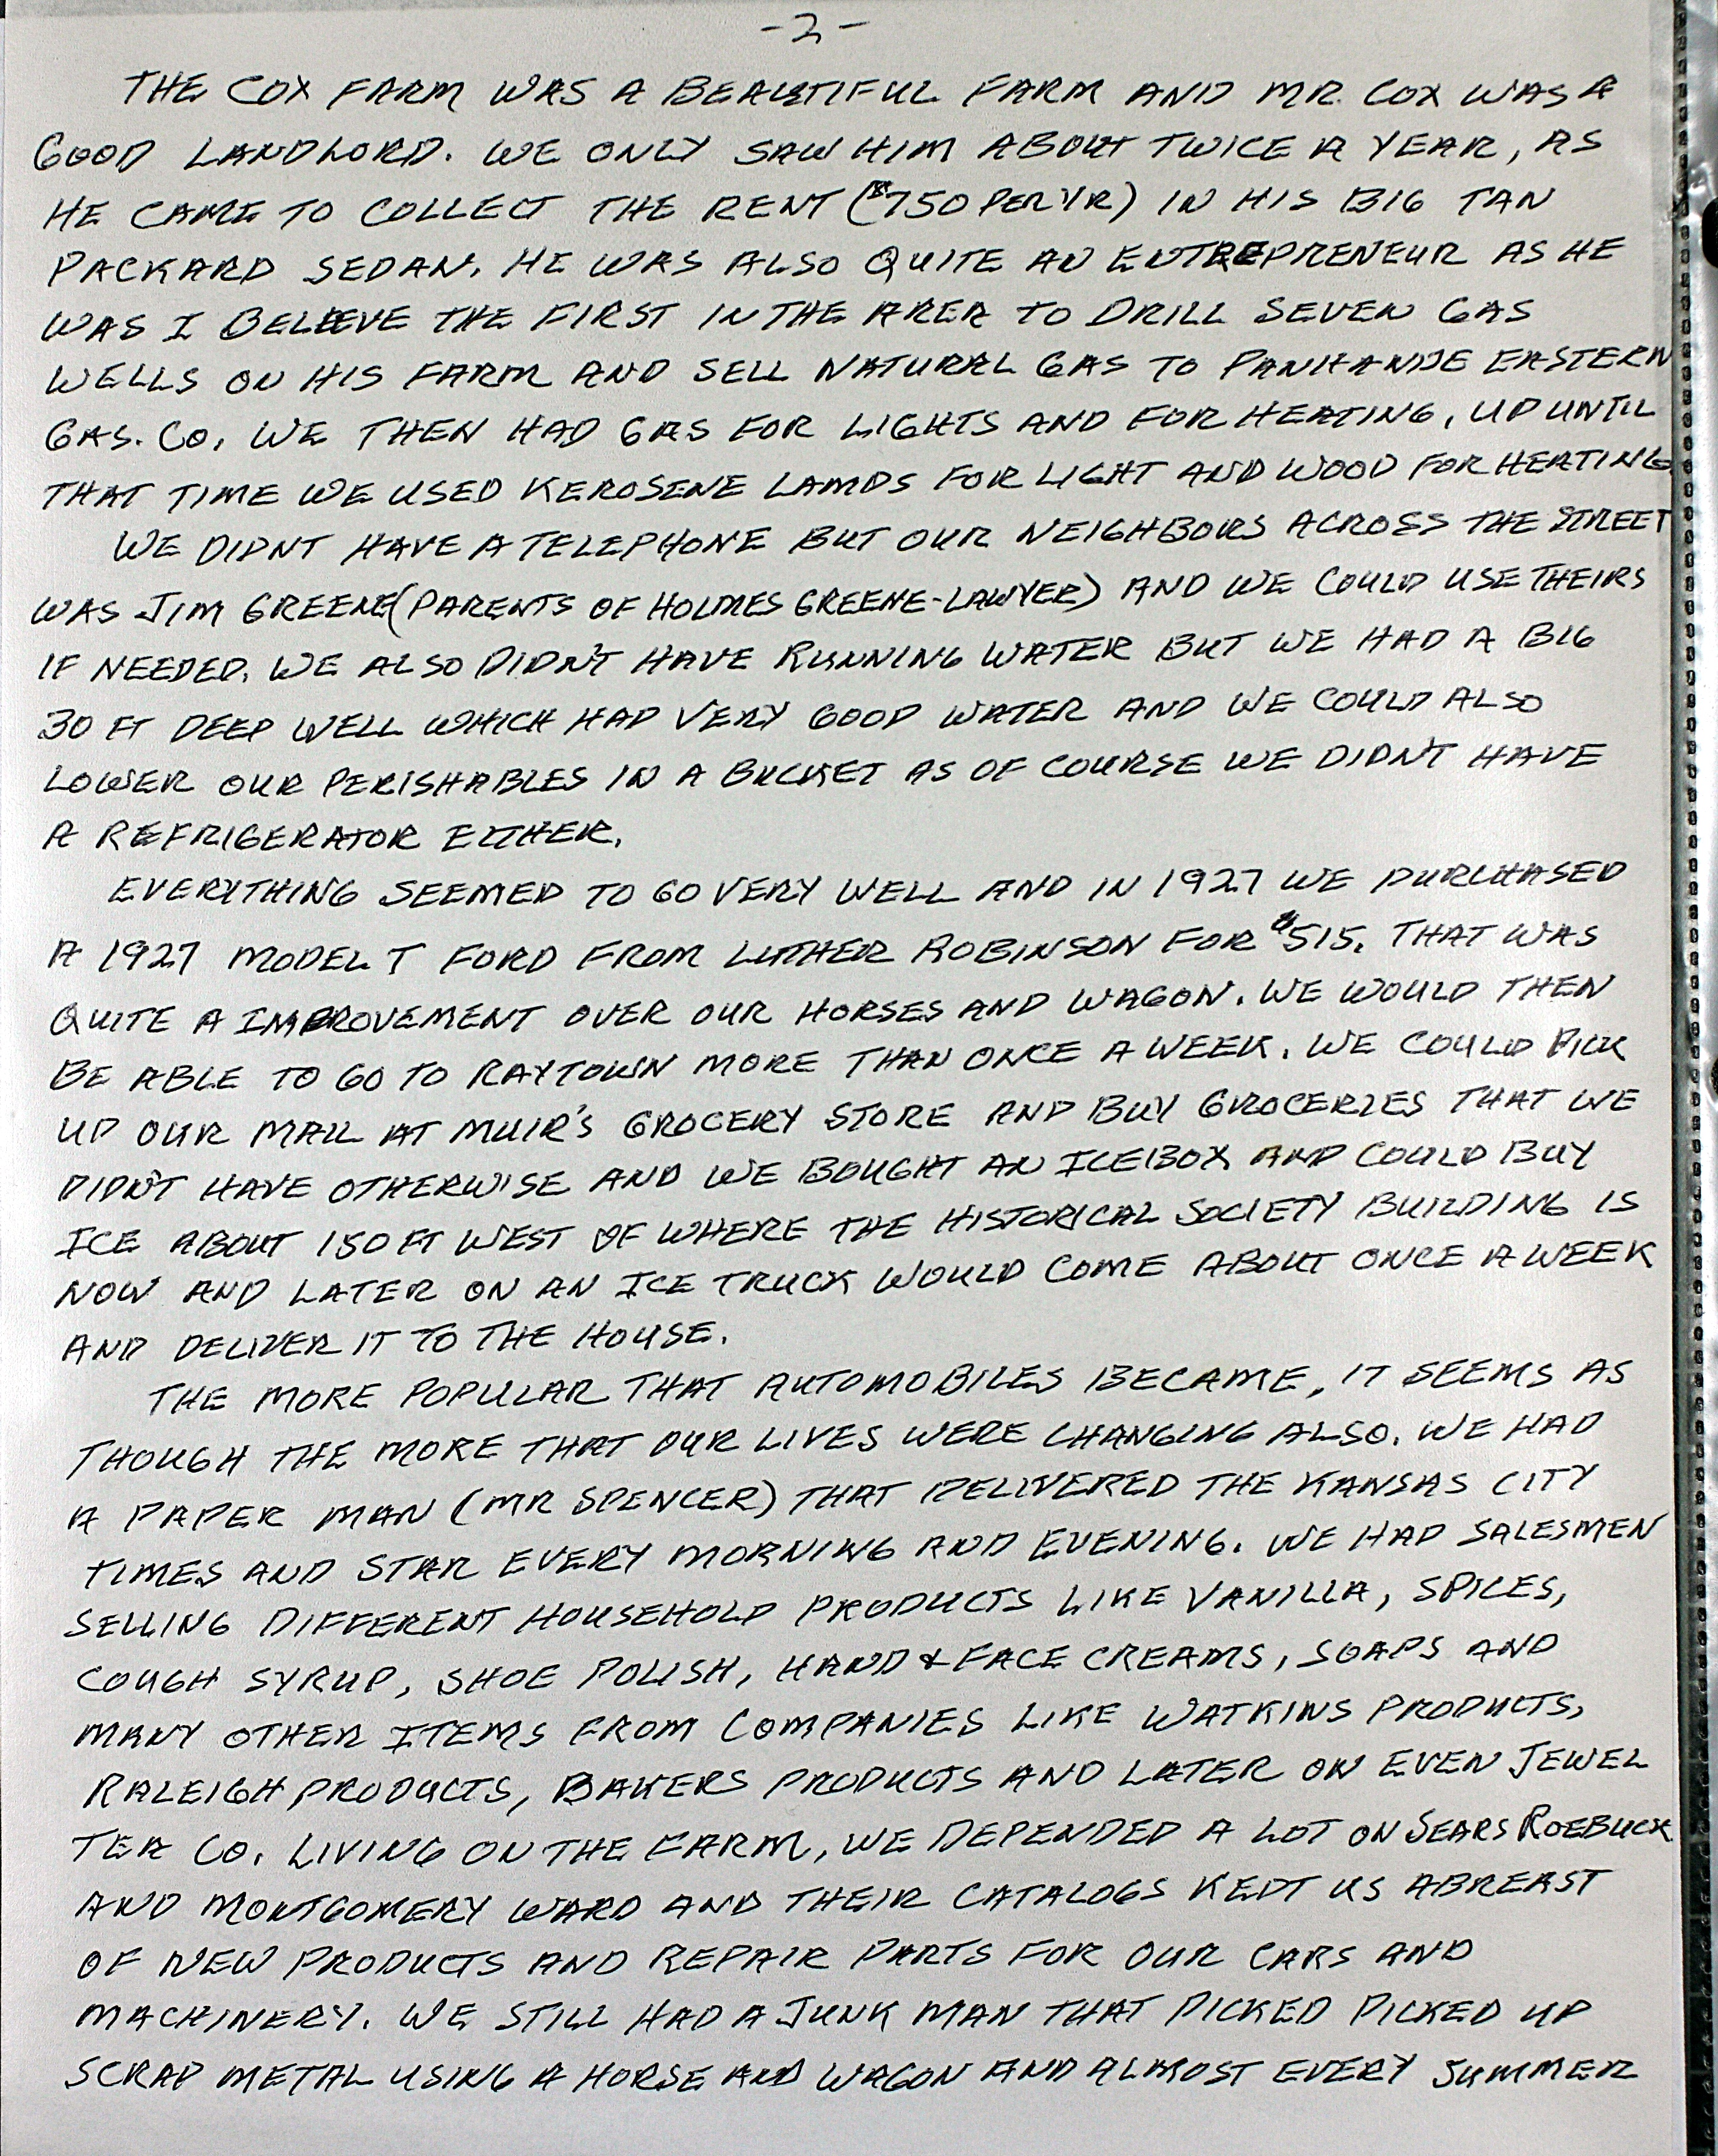 -2-
THE COX FARM WAS A BEAUTIFUL FARM AND MR. COX WAS A
GOOD LANDLORD. WE ONLY SAW HIM ABOUT TWICE A YEAR, AS
HE CAME TO COLLECT THE RENT ($750 PER YR) IN HIS BIG TAN
PACKARD SEDAN. HE WAS ALSO QUITE AN ENTREPRENEUR AS HE
WAS I BELEEVE THE FIRST IN THE AREA TO DRILL SEVEN GAS
WELLS ON HIS FARM AND SELL NATURAL GAS TO PANHANDLE EASTERN
GAS. CO. WE THEN HAD GAS FOR LIGHTS AND FOR HEATING, UP UNTIL
THAT TIME WE USED KEROSENE LAMPS FOR LIGHT AND WOOD FOR HEATING.
WE DIDNT HAVE A TELEPHONE BUT OUR NEIGHBOURS ACROSS THE STREET
WAS JIM GREENE (PARENTS OF HOLMES GREENE-LAWYER) AND WE COULD USE THEIRS
IF NEEDED. WE ALSO DIDN'T HAVE RUNNING WATER BUT WE HAD A BIG
30 FT DEEP WELL WHICH HAD VERY GOOD WATER AND WE COULD ALSO
LOWER OUR PERISHABLES IN A BUCKET AS OF COURSE WE DIDN'T HAVE
A REFRIGERATOR EITHER.
EVERYTHING SEEMED TO GO VERY WELL AND IN 1927 WE PURCHASED
A 1927 MODEL T FORD FROM LUTHER ROBINSON FOR $515. THAT WAS
QUITE A IMPROVEMENT OVER OUR HORSES AND WAGON. WE WOULD THEN
BE ABLE TO GO TO RAYTOWN MORE THAN ONCE A WEEK. WE COULD PICK
UP OUR MAIL AT MUIR'S GROCERY STORE AND BUY GROCERIES THAT WE
DIDN'T HAVE OTHERWISE AND WE BOUGHT AN ICEBOX AND COULD BUY
ICE ABOUT 150 FT WEST OF WHERE THE HISTORICAL SOCIETY BUILDING IS
NOW AND LATER ON AN ICE TRUCK WOULD COME ABOUT ONCE A WEEK
AND DELIVER IT TO THE HOUSE.
THE MORE POPULAR THAT AUTOMOBILES BECAME, IT SEEMS AS
THOUGH THE MORE THAT OUR LIVES WERE CHANGING ALSO. WE HAD
A PAPER MAN (MR SPENCER) THAT DELIVERED THE KANSAS CITY
TIMES AND STAR EVERY MORNING AND EVENING. WE HAD SALESMEN
SELLING DIFFERENT HOUSEHOLD PRODUCTS LIKE VANILLA, SPICES,
COUGH SYRUP, SHOE POLISH, HAND & FACE CREAMS, SOAPS AND
MANY OTHER ITEMS FROM COMPANIES LIKE WATKINS PRODUCTS,
RALEIGH PRODUCTS, BAKERS PRODUCTS AND LATER ON EVEN JEWEL
TEA CO. LIVING ON THE FARM, WE DEPENDED A LOT ON SEARS ROEBUCK
AND MONTGOMERY WARD AND THEIR CATALOGS KEPT US ABREAST
OF NEW PRODUCTS AND REPAIR PARTS FOR OUR CARS AND
MACHINERY. WE STILL HAD A JUNK MAN THAT PICKED PICKED UP
SCRAP METAL USING A HORSE AND WAGON AND ALMOST EVERY SUMMER